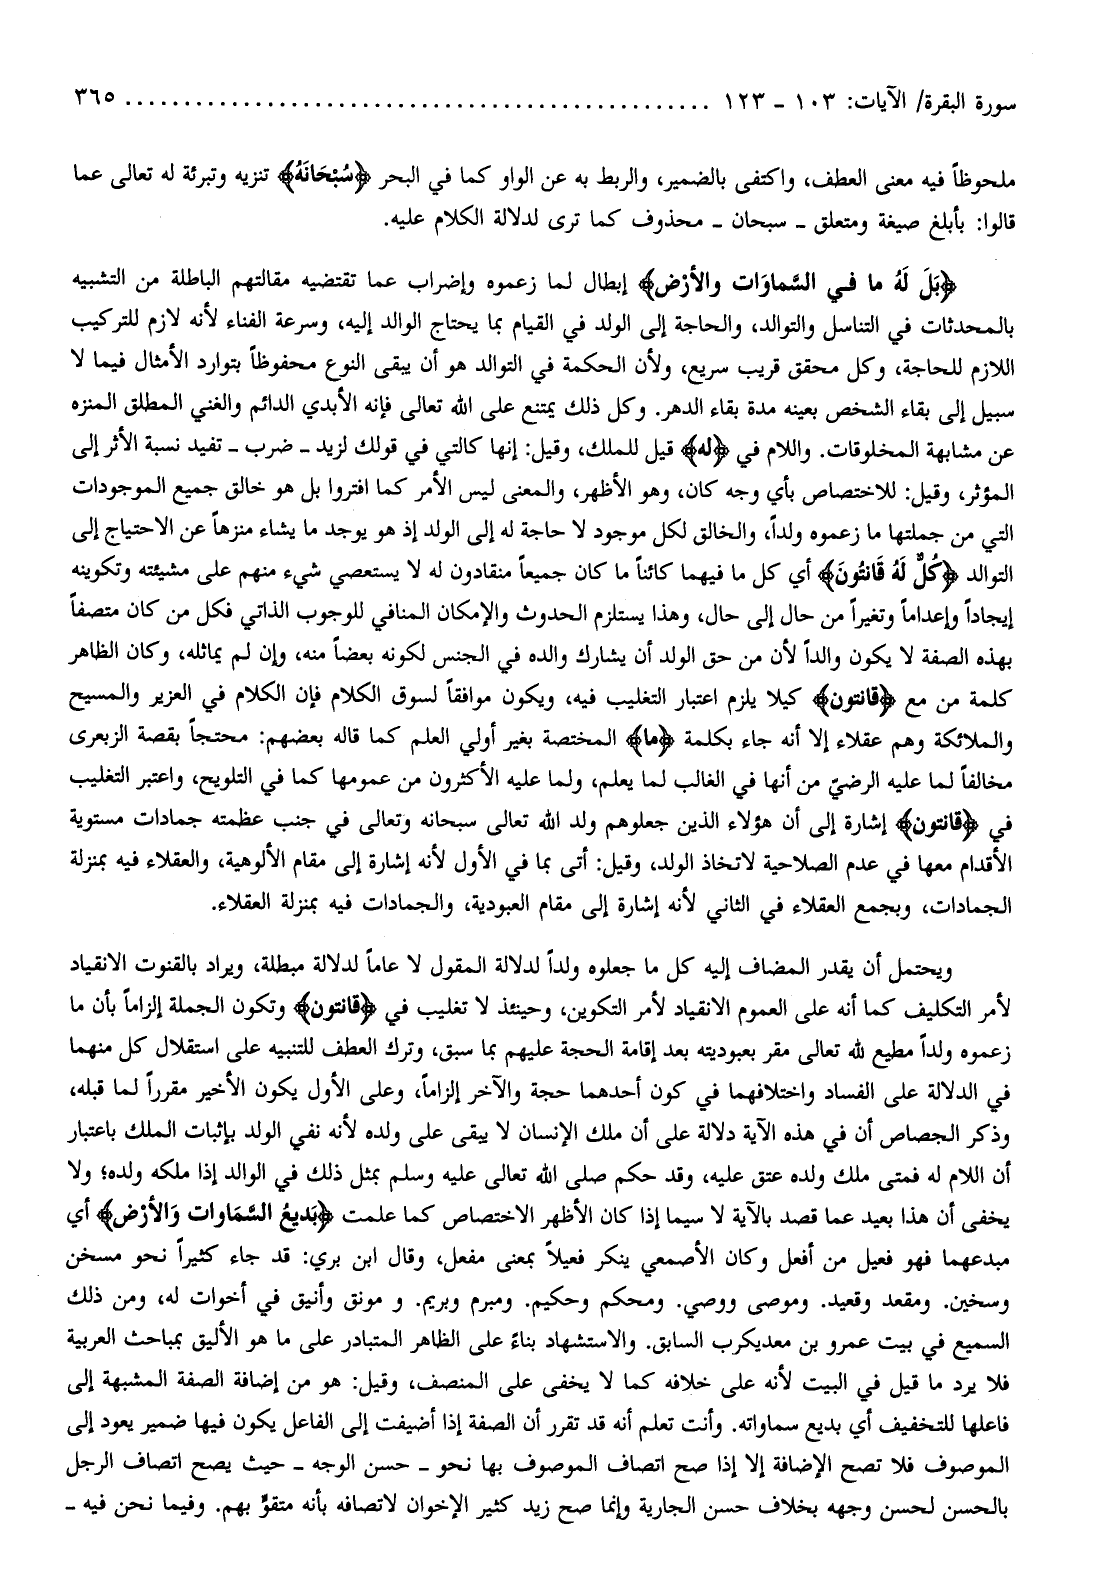 سورة البقرة/ الآيات: ١٠٣ ـ ١٢٣ .................................................. ٣٦٥
ملحوظاً فيه معنى العطف، واكتفى بالضمير، والربط به عن الواو كما في البحر ﴿سُبْحَانَهُ﴾ تنزيه وتبرئة له تعالى عما
قالوا: بأبلغ صيغة ومتعلق ـ سبحان ـ محذوف كما ترى لدلالة الكلام عليه.
﴿بَلَ لَهُ ما فـي السَّماوَات والأرْض﴾ إبطال لـما زعموه وإضراب عما تقتضيه مقالتهم الباطلة من التشبيه
بالـمحدثات في التناسل والتوالد، والحاجة إلى الولد في القيام بما يحتاج الوالد إليه، وسرعة الفناء لأنه لازم للتركيب
اللازم للحاجة، وكل محقق قريب سريع، ولأن الحكمة في التوالد هو أن يبقى النوع محفوظاً بتوارد الأمثال فيما لا
سبيل إلى بقاء الشخص بعينه مدة بقاء الدهر. وكل ذلك يمتنع على الله تعالى فإنه الأبدي الدائم والغني المطلق المنزه
عن مشابهة المخلوقات. واللام في ﴿له﴾ قيل للملك، وقيل: إنها كالتي في قولك لزيد ـ ضرب ـ تفيد نسبة الأثر إلى
المؤثر، وقيل: للاختصاص بأي وجه كان، وهو الأظهر، والمعنى ليس الأمر كما افتروا بل هو خالق جميع الموجودات
التي من جملتها ما زعموه ولداً، والخالق لكل موجود لا حاجة له إلى الولد إذ هو يوجد ما يشاء منزهاً عن الاحتياج إلى
التوالد ﴿كُلٌّ لَهُ قَانتُونَ﴾ أي كل ما فيهما كائناً ما كان جميعاً منقادون له لا يستعصي شيء منهم على مشيئته وتكوينه
إيجاداً وإعداماً وتغيراً من حال إلى حال، وهذا يستلزم الحدوث والإمكان المنافي للوجوب الذاتي فكل من كان متصفاً
بهذه الصفة لا يكون والداً لأن من حق الولد أن يشارك والده في الجنس لكونه بعضاً منه، وإن لم يماثله، وكان الظاهر
كلمة من مع ﴿قانتون﴾ كيلا يلزم اعتبار التغليب فيه، ويكون موافقاً لسوق الكلام فإن الكلام في العزير والمسيح
والملائكة وهم عقلاء إلا أنه جاء بكلمة ﴿ما﴾ المختصة بغير أولي العلم كما قاله بعضهم: محتجاً بقصة الزبعرى
مخالفاً لما عليه الرضيّ من أنها في الغالب لما يعلم، ولما عليه الأكثرون من عمومها كما في التلويح، واعتبر التغليب
في ﴿قانتون﴾ إشارة إلى أن هؤلاء الذين جعلوهم ولد الله تعالى سبحانه وتعالى في جنب عظمته جمادات مستوية
الأقدام معها في عدم الصلاحية لاتخاذ الولد، وقيل: أتى بما في الأول لأنه إشارة إلى مقام الألوهية، والعقلاء فيه بمنزلة
الجمادات، وبجمع العقلاء في الثاني لأنه إشارة إلى مقام العبودية، والجمادات فيه بمنزلة العقلاء.
ويحتمل أن يقدر المضاف إليه كل ما جعلوه ولداً لدلالة المقول لا عاماً لدلالة مبطلة، ويراد بالقنوت الانقياد
لأمر التكليف كما أنه على العموم الانقياد لأمر التكوين، وحينئذ لا تغليب في ﴿قانتون﴾ وتكون الجملة إلزاماً بأن ما
زعموه ولداً مطيع لله تعالى مقر بعبوديته بعد إقامة الحجة عليهم بما سبق، وترك العطف للتنبيه على استقلال كل منهما
في الدلالة على الفساد واختلافهما في كون أحدهما حجة والآخر إلزاماً، وعلى الأول يكون الأخير مقرراً لما قبله،
وذكر الجصاص أن في هذه الآية دلالة على أن ملك الإنسان لا يبقى على ولده لأنه نفي الولد بإثبات الملك باعتبار
أن اللام له فمتى ملك ولده عتق عليه، وقد حكم صلى الله تعالى عليه وسلم بمثل ذلك في الوالد إذا ملكه ولده؛ ولا
يخفى أن هذا بعيد عما قصد بالآية لا سيما إذا كان الأظهر الاختصاص كما علمت ﴿بَديعُ السَّمَاوات وَالأرْض﴾ أي
مبدعهما فهو فعيل من أفعل وكان الأصمعي ينكر فعيلاً بمعنى مفعل، وقال ابن بري: قد جاء كثيراً نحو مسخن
وسخين. ومقعد وقعيد. وموصى ووصي. ومحكم وحكيم. ومبرم وبريم. و مونق وأنيق في أخوات له، ومن ذلك
السميع في بيت عمرو بن معديكرب السابق. والاستشهاد بناءً على الظاهر المتبادر على ما هو الأليق بمباحث العربية
فلا يرد ما قيل في البيت لأنه على خلافه كما لا يخفى على المنصف، وقيل: هو من إضافة الصفة المشبهة إلى
فاعلها للتخفيف أي بديع سماواته. وأنت تعلم أنه قد تقرر أن الصفة إذا أضيفت إلى الفاعل يكون فيها ضمير يعود إلى
الموصوف فلا تصح الإضافة إلا إذا صح اتصاف الموصوف بها نحو ـ حسن الوجه ـ حيث يصح اتصاف الرجل
بالحسن لحسن وجهه بخلاف حسن الجارية وإنما صح زيد كثير الإخوان لاتصافه بأنه متقوٍّ بهم. وفيما نحن فيه ـ